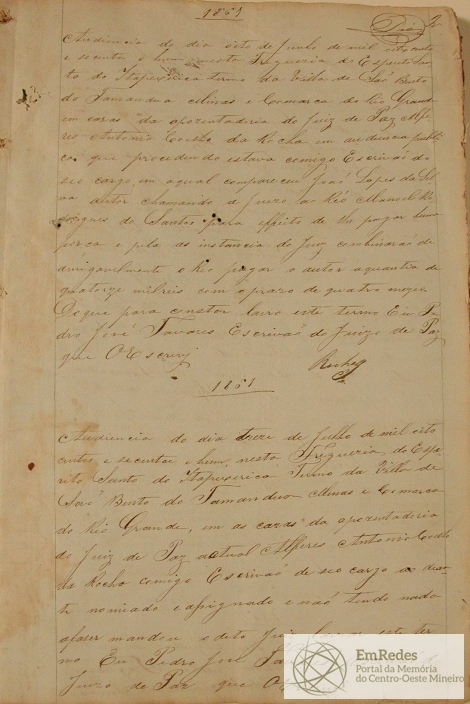 1861
Audiencia do dia sete de Junho de mil oito centos
e secenta e hum nesta Freguezia do Espirito San
to do Itapecerica termo da Villa de São Bento
do Tamandua Minas e Comarca do Rio Grande
em caras da apozentadoria do Juiz de Paz Alfe
res Antonio Coelho da Rocha em audiencia publi
ca que procedendo estava comigo Escrivão de
seo cargo em aqual compareceu José Lopes da
autor chamando a Juizo ao Reo Manoel Ro
drigues do Santos para effeito de lhe pagar huma
porca e pela as instancia do Juiz combinarão se
amigavelmente o Reo pagar o autor aquantia de
quatorze milreis com o prazo de quatro mezes
Doque para constar lavro este termo Eu Pe
dro José Tavares Escrivão do Juizo de Paz
que O Escrevy
Rocha
1861
Audiencia do dia treze de Julho de mil oito
centos e secenta e hum, nesta Freguezia do Espi
rito Santo do Itapecerica Termo da Villa de
São Bento do Tamandua Minas e Comarca
do Rio Grande, em as caras da apozentadoria
do Juiz de Paz actual Alferes Antonio Coelho
da Rocha comigo Escrivão de seo cargo a dian
te nomiado e asignado e não tendo nada
afazer mandou o dito Juiz este ter
mo Eu Pedro José
Juizo de Paz que
EmRedes
Portal da Memória
do Centro-Oeste Mineiro